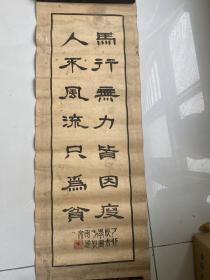 馬行無力皆因瘦
人不風流只為貧